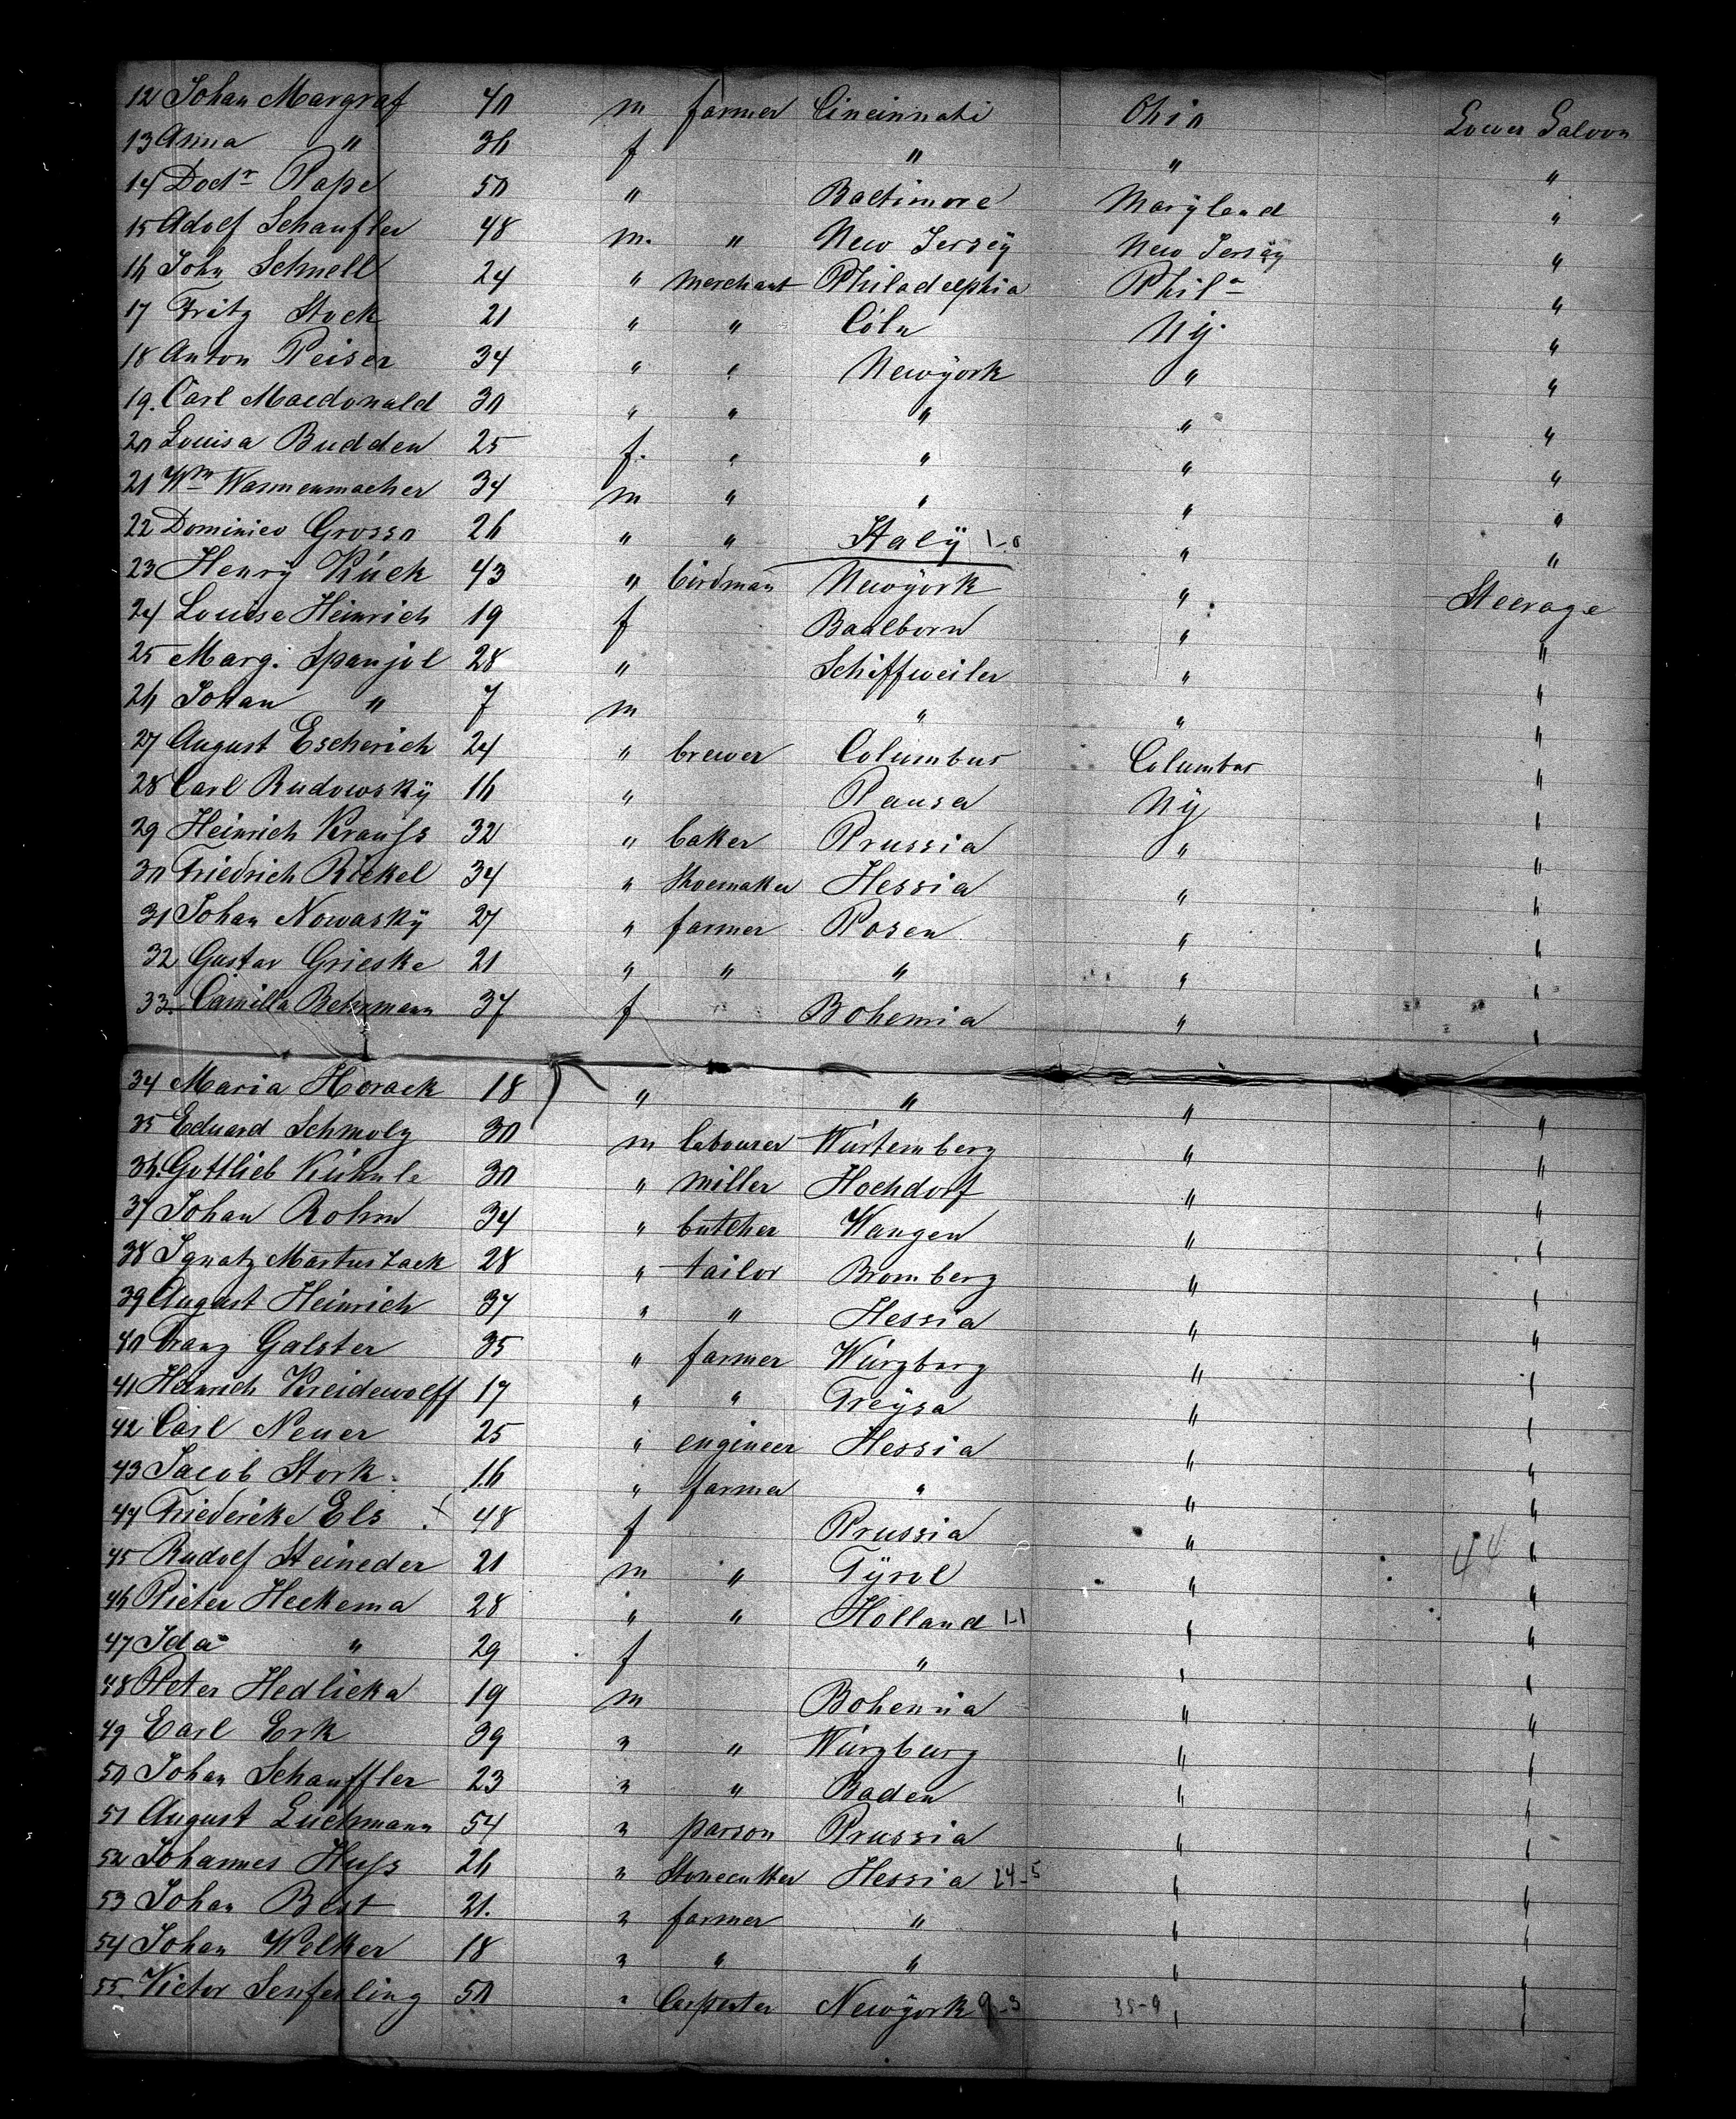 12 Johan Margraf 40 m farmer Cincinnati Ohio Lower Saloon
13 Anna " 36 f " " "
14 Doctr Pape 50 " Baltimore Maryland "
15 Adolf Schaufler 48 m. " New Jersey New Jersey "
16 John Schnell 24 " merchant Philadelphia Phila "
17 Fritz Stock 21 " " Cöln Ny. "
18 Anton Peiser 34 " " Newyork " "
19. Carl Macdonald 30 " " " " "
20 Louisa Budden 25 f. " " " "
21 Wm Wannenmacher 34 m " " " "
22 Dominico Grosso 26 " " Italy 1-0 " "
23 Henry Rück 43 " birdman Newyork " Steerage
24 Louise Heinrich 19 f Baalborn " "
25 Marg. Spanjol 28 " Schiffweiler " "
26 Johan " 7 m " " "
27 August Escherich 24 " brewer Columbus Columbus "
28 Carl Rudowsky 16 " Pausa Ny "
29 Heinrich Krauss 32 " baker Prussia " "
30 Friedrich Rickel 34 " Shoemaker Hessia " "
31 Johan Nowasky 27 " farmer Posen " "
32 Gustav Grieske 21 " " " " "
33. Camilla Behrmann 37 f Bohemia " "
34 Maria Horack 18 " " " "
35 Eduard Schmolz 30 m labourer Würtemberg " "
36. Gottlieb Kühnle 30 " miller Hochdorf " "
37 Johan Rohm 34 " butcher Wangen " "
38 Ignatz Martuszack 28 " tailor Bromberg " "
39 August Heinrich 37 " " Hessia " "
40 Franz Galster 35 " farmer Würzburg " "
41 Heinrich Kreidewolff 17 " " Treysa " "
42 Carl Neuer 25 " engineer Hessia " "
43 Jacob Stork 16 " farmer " " "
44 Friedericke Els 48 f Prussia " " 44
45 Rudolf Steineder 21 m " Tyrol " "
46 Pieter Heckema 28 " " Holland 1-1 " "
47 Ida " 29 f " " "
48 Peter Hedlicka 19 m Bohemia " "
49 Carl Erk 39 " " Würzburg " "
50 Johan Schauffler 23 " " Baden " "
51 August Luchmann 54 " parson Prussia " "
52 Johannes Huss 26 " Stonecutter Hessia 24-5 " "
53 Johan Best 21. " farmer " " "
54 Johan Welker 18 " " " " "
55. Victor 50 " Carpenter Newyork 9-3 35-9 " "